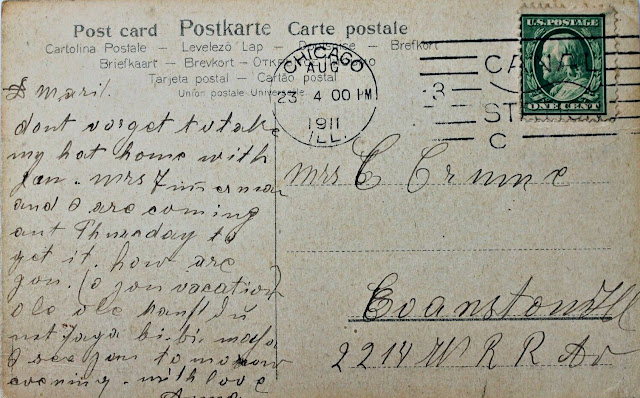 Post card Postkarte Carte postale
Cartolina Postale – Levelező Lap – – Brefkort
Briefkaart – Brevkort –
Tarjeta postal – Cartão postal
Union postale Universelle
U.S. POSTAGE
ONE CENT
CHICAGO
AUG
23 4 00 PM
1911
ILL.
3
CANAL
ST
C
mari.
dont vorget to take
my hat home with
Mrs
and I are coming
out Thursday to
get it. how are
you. vacation
ole ole

I see you to morrow
evening. with love
Mrs C Crume
Evanston Ill
2214 W R R Av